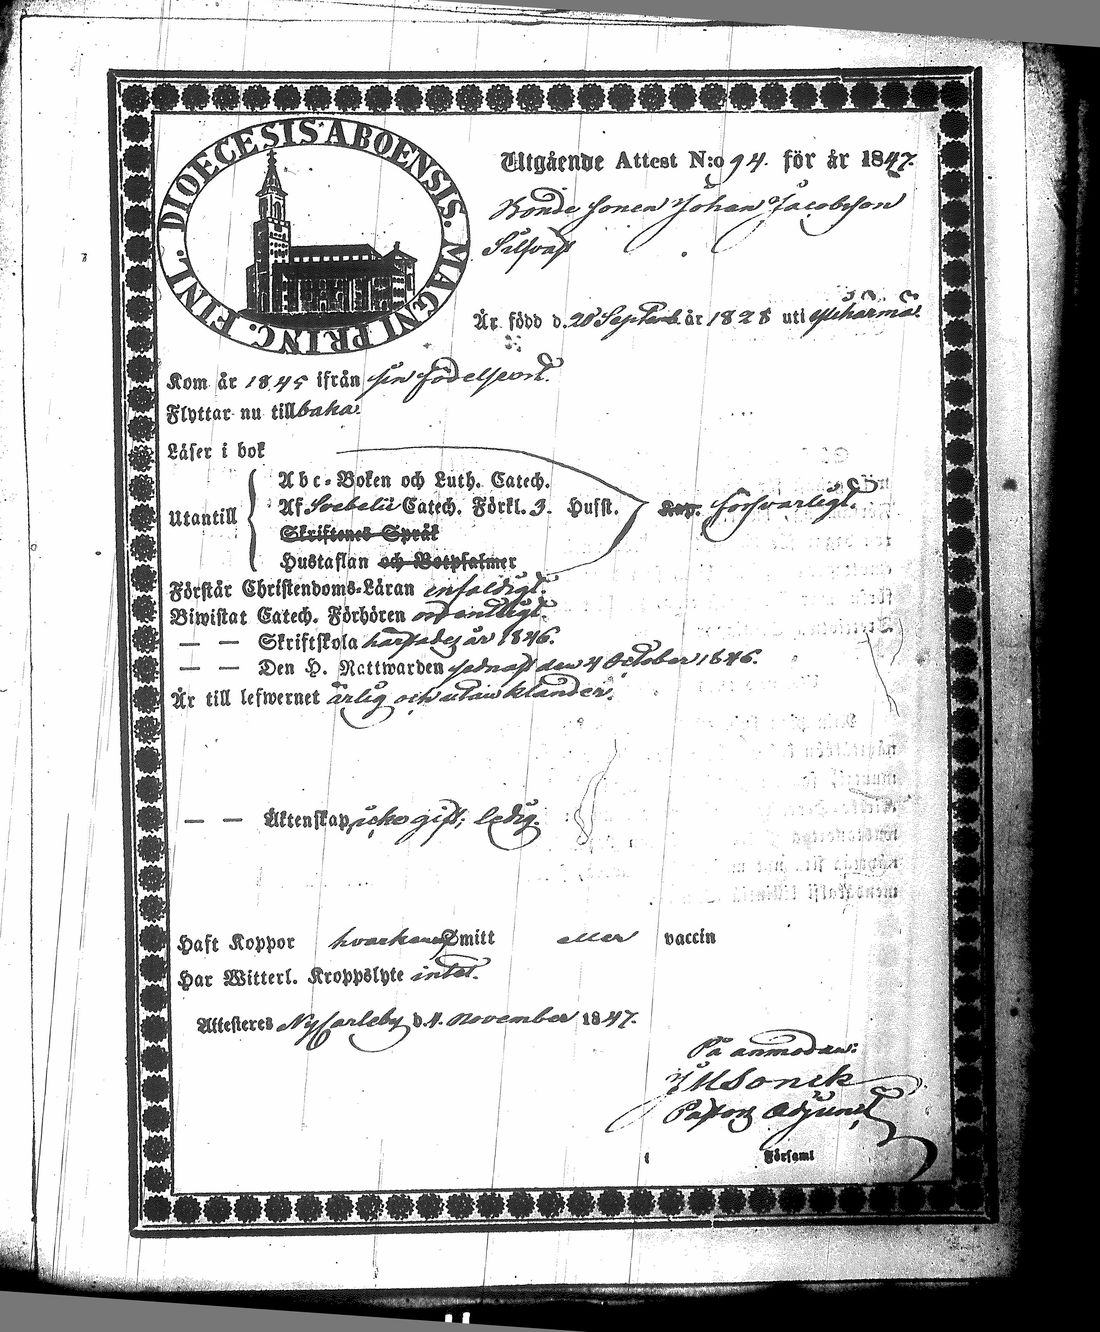 DIOECESIS ABOENSIS. MAGNI PRINC. FINL.
Utgående Attest N:o 94. för år 1847.
Bonde sonen Johan Jacobsson
Är född d. 20 Septemb. år 1828 uti Ylihärmä.
Kom år 1845 ifrån sin födelseort.
Flyttar nu tillbaka.
Läser i bok
Abc-Boken och Luth. Catech.
Utantill
Af Svebelii Catech. Förkl. 3. Husst.
försvarligt.
Skriftenes Språk
Hustaflan och Botpsalmer
Förstår Christendoms-Läran enfaldigt.
Biwistat Catech. Förhören ordentligt.
— — Skriftskola härstädes år 1846.
— — Den H. Nattwarden sednast den 4 October 1846.
Är till lefwernet ärlig och utan klander.
— — Äktenskap icke gift; ledig.
Haft Koppor hvarken Smitt eller vaccin
Har Witterl. Kroppslyte intet.
Attesteres NyCarleby d. 4. November 1847.
På anmodan:
Pastors Adjunct
Församl